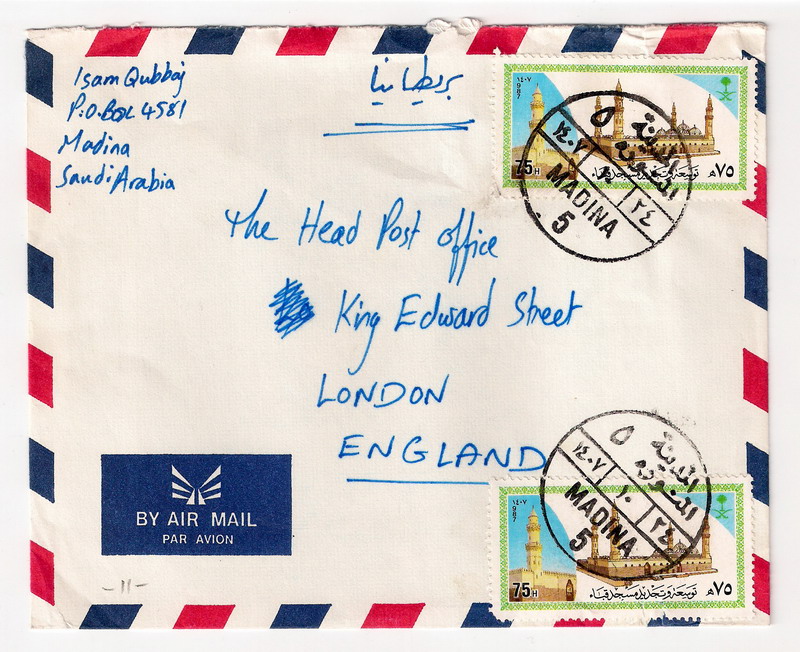 Isam Qubbaj
P.O.Box 4581
Madina
Saudi Arabia
بريطانيا
١٤٠٧
1987
75H
٧٥ هـ
توسعة وتجديد مسجد قباء
المدينة
المنورة
٥
١٤٠٧
٢٤
MADINA
5
The Head Post office
King Edward Street
LONDON
ENGLAND
BY AIR MAIL
PAR AVION
-11-
المدينة
المنورة
٥
١٤٠٧
١٠
٢٤
MADINA
5
١٤٠٧
1987
75H
٧٥ هـ
توسعة وتجديد مسجد قباء